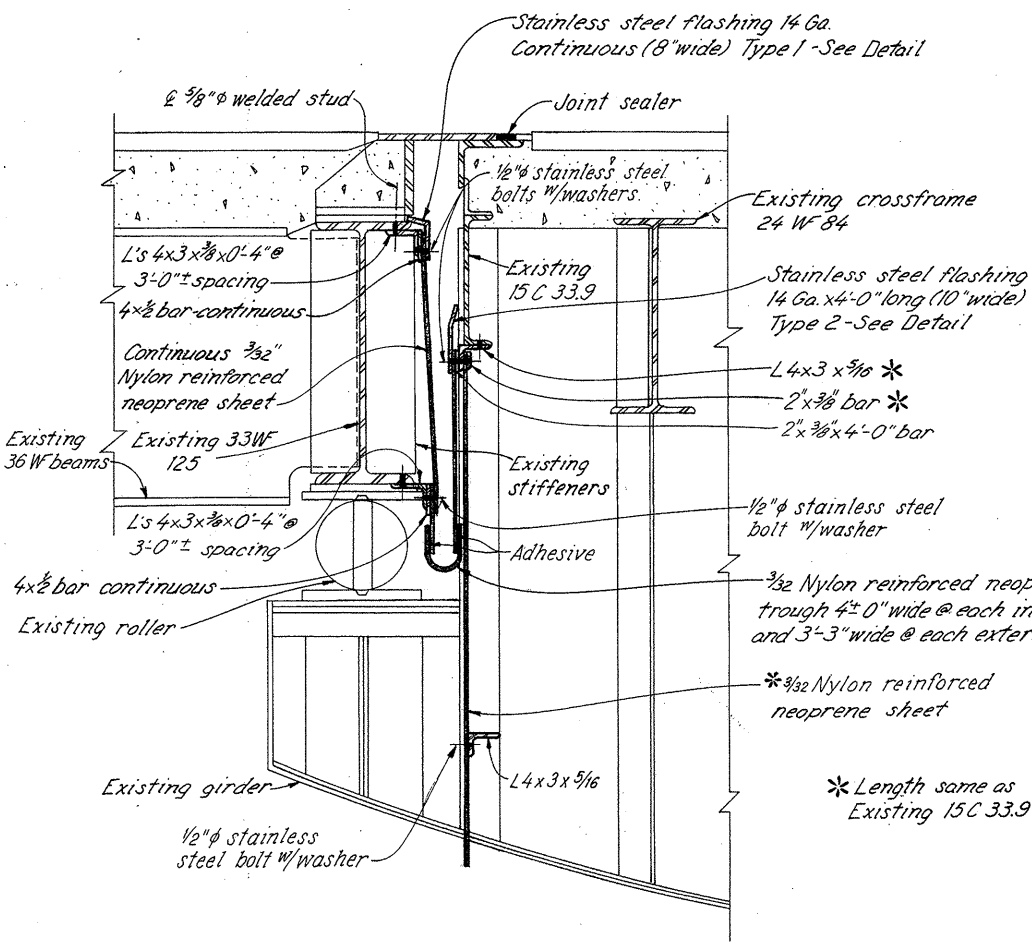 Stainless steel flashing 14 Ga.
Continuous (8"wide) Type 1 -See Detail
℄ 5/8"ϕ welded stud
Joint sealer
1/2"ϕ stainless steel
bolts w/washers
Existing crossframe
24 WF 84
L's 4x3x3/8x0'-4"@
3'-0"± spacing
4x1/2 bar-continuous
Existing
15 C 33.9
Stainless steel flashing
14 Ga.x4'-0"long (10"wide)
Type 2-See Detail
Continuous 3/32"
Nylon reinforced
neoprene sheet
L4x3x5/16 *
2"x3/8" bar *
2"x3/8"x4'-0" bar
Existing
36 WF beams
Existing 33WF
125
Existing
stiffeners
L's 4x3x3/8x0'-4"@
3'-0"± spacing
1/2"ϕ stainless steel
bolt w/washer
Adhesive
4x1/2 bar continuous
Existing roller
3/32 Nylon reinforced neop
trough 4'± 0"wide @ each in
and 3'-3"wide @ each exter
*3/32 Nylon reinforced
neoprene sheet
L4x3x5/16
Existing girder
* Length same as
Existing 15 C 33.9
1/2"ϕ stainless
steel bolt w/washer